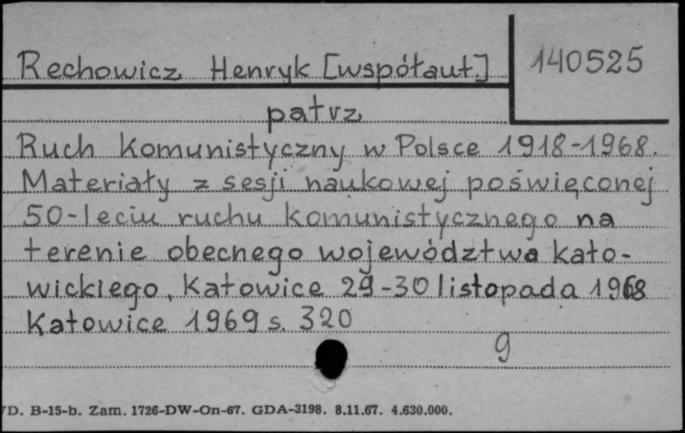 Rechowicz Henryk [współaut.] 140525
patrz
Ruch komunistyczny w Polsce 1918-1968.
Materiały z sesji naukowej poświęconej
50-leciu ruchu komunistycznego na
terenie obecnego województwa kato-
wickiego, Katowice 29-30 listopada 1968
Katowice 1969 s. 320
9
/D. B-15-b. Zam. 1726-DW-On-67. GDA-3198. 8.11.67. 4.630.000.